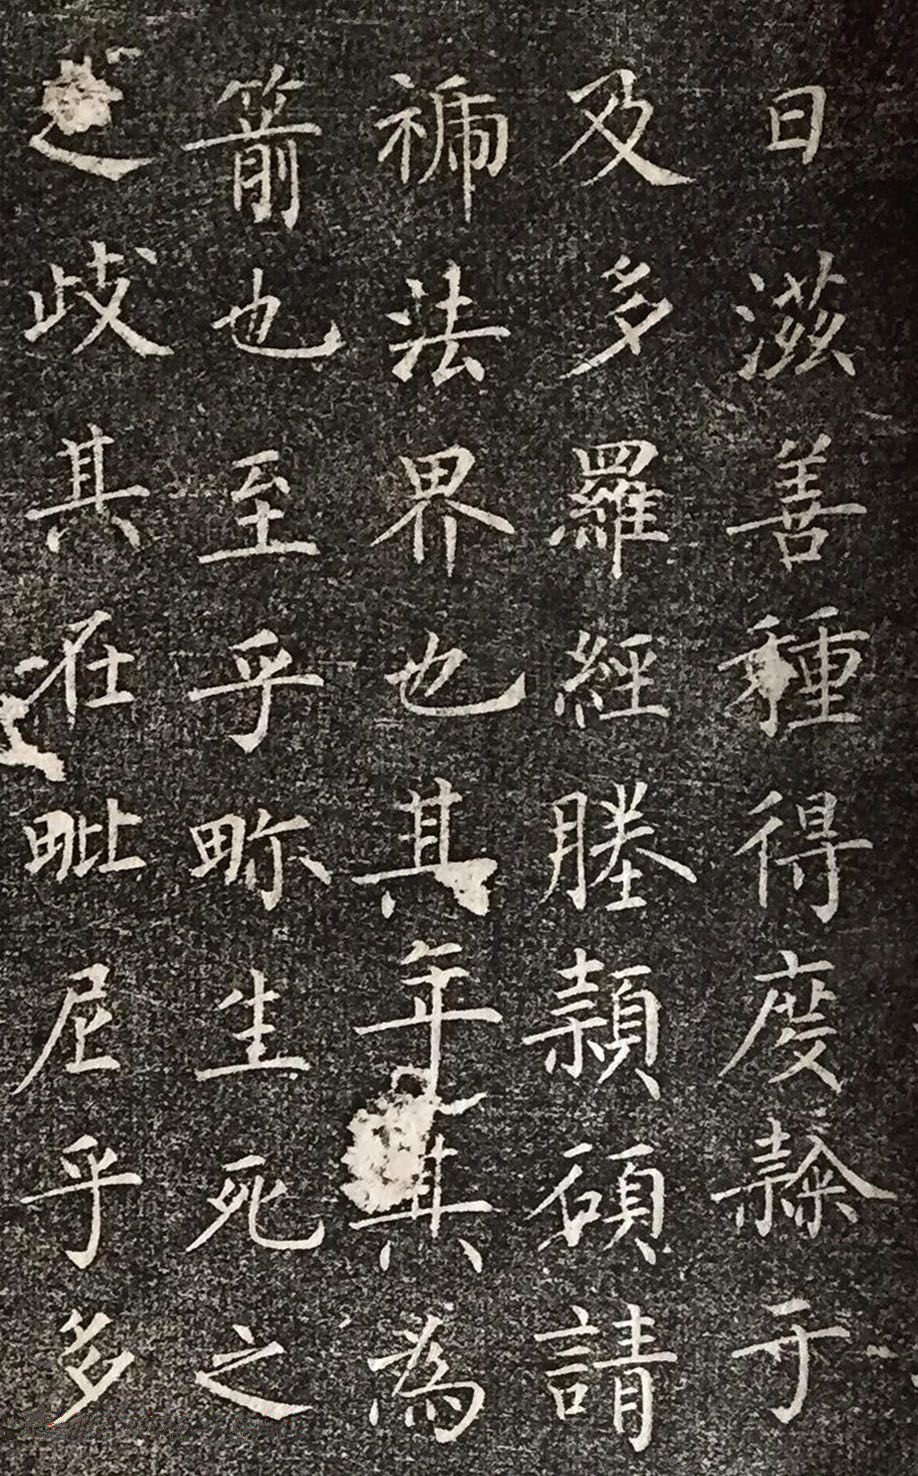 日滋善種得度隸于
及多羅經塍穎碩請
法界也其年其為
箭也至乎畛生死之
歧其在毗尼乎多